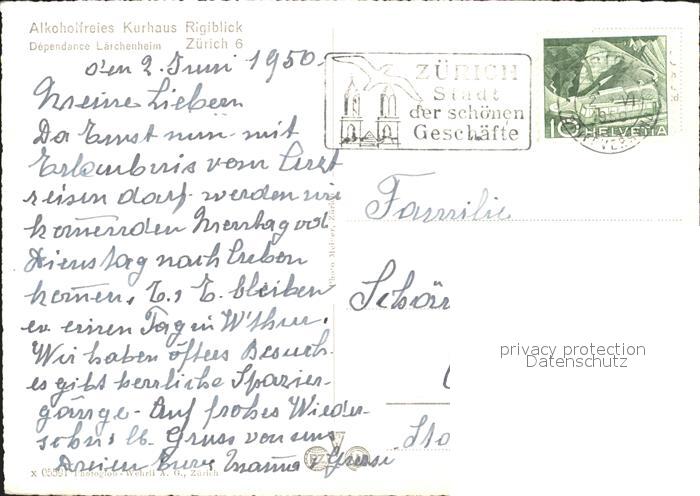 Alkoholfreies Kurhaus Rigiblick
Dépendance Lärchenheim Zürich 6
den 2. Juni 1950.
Meine Lieben
Da Ernst nun mit
Erlaubnis vom Arzt
reisen darf werden wir
kommenden Montag od.
Dienstag nach Leben
kommen, E. bleiben
ev. einen Tag in W'thur.
Wir haben öfters Besuch
es gibt herrliche Spazier-
gänge. Auf frohes Wieder-
sehn lb. Gruss von uns
Dreien Eure Mama
x 05591 Photoglob-Wehrli A. G., Zürich
ZÜRICH
Stadt
der schönen
Geschäfte
10 HELVETIA
Familie
Schär
privacy protection
Datenschutz